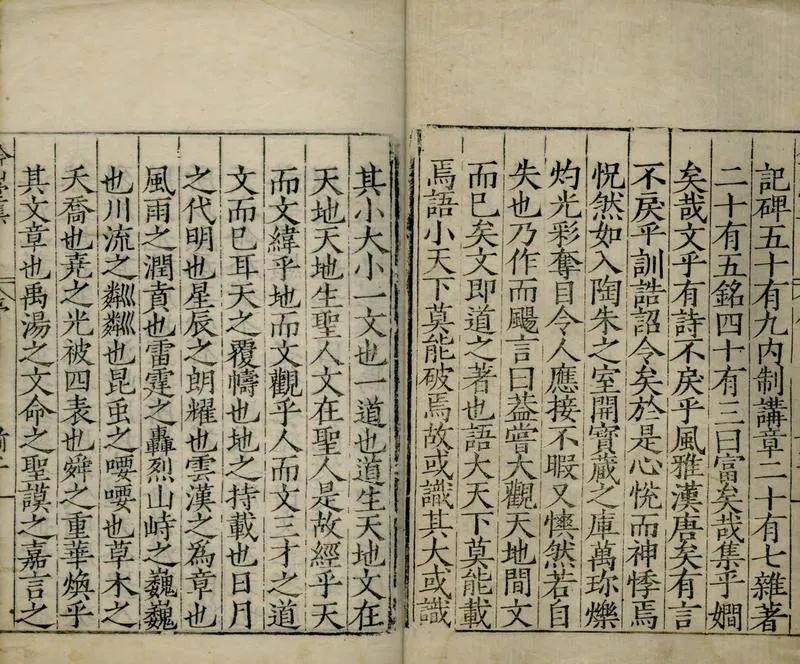 記碑五十有九内制講章二十有七雜著
二十有五銘四十有三曰富矣哉集乎嫺
矣哉文乎有詩不戾乎風雅漢唐矣有言
不戾乎訓誥詔令矣於是心恱而神悸焉
怳然如入陶朱之室開寳藏之庫萬珎爍
灼光彩奪目令人應接不暇又懊然若自
失也乃作而颺言曰葢嘗大觀天地間文
而已矣文即道之著也語大天下莫能載
焉語小天下莫能破焉故或識其大或識
其小大小一文也一道也道生天地文在
天地天地生聖人文在聖人是故經乎天
而文緯乎地而文觀乎人而文三才之道
文而已耳天之覆幬也地之持載也日月
之代明也星辰之朗耀也雲漢之爲章也
風雨之潤賁也雷霆之轟烈山峙之巍巍
也川流之粼粼也昆虫之喓喓也草木之
夭喬也堯之光被四表也舜之重華煥乎
其文章也禹湯之文命之聖謨之嘉言之